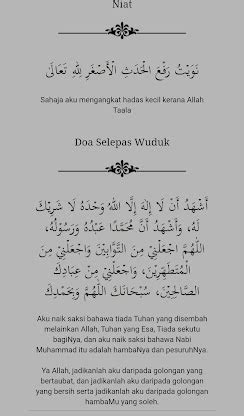 Niat
نَوَيْتُ رَفْعَ الْحَدَثِ الْأَصْغَرِ لِلّٰهِ تَعَالَى
Sahaja aku mengangkat hadas kecil kerana Allah
Taala
Doa Selepas Wuduk
أَشْهَدُ أَنْ لَا إِلٰهَ إِلَّا اللّٰهُ وَحْدَهُ لَا شَرِيْكَ
لَهُ، وَأَشْهَدُ أَنَّ مُحَمَّدًا عَبْدُهُ وَرَسُوْلُهُ،
اللّٰهُمَّ اجْعَلْنِيْ مِنَ التَّوَّابِيْنَ وَاجْعَلْنِيْ مِنَ
الْمُتَطَهِّرِيْنَ، وَاجْعَلْنِيْ مِنْ عِبَادِكَ
الصَّالِحِيْنَ، سُبْحَانَكَ اللّٰهُمَّ وَبِحَمْدِكَ
Aku naik saksi bahawa tiada Tuhan yang disembah
melainkan Allah, Tuhan yang Esa, Tiada sekutu
bagiNya, dan aku naik saksi bahawa Nabi
Muhammad itu adalah hambaNya dan pesuruhNya.
Ya Allah, jadikanlah aku daripada golongan yang
bertaubat, dan jadikanlah aku daripada golongan
yang bersih serta jadikanlah aku daripada golongan
hambaMu yang soleh.